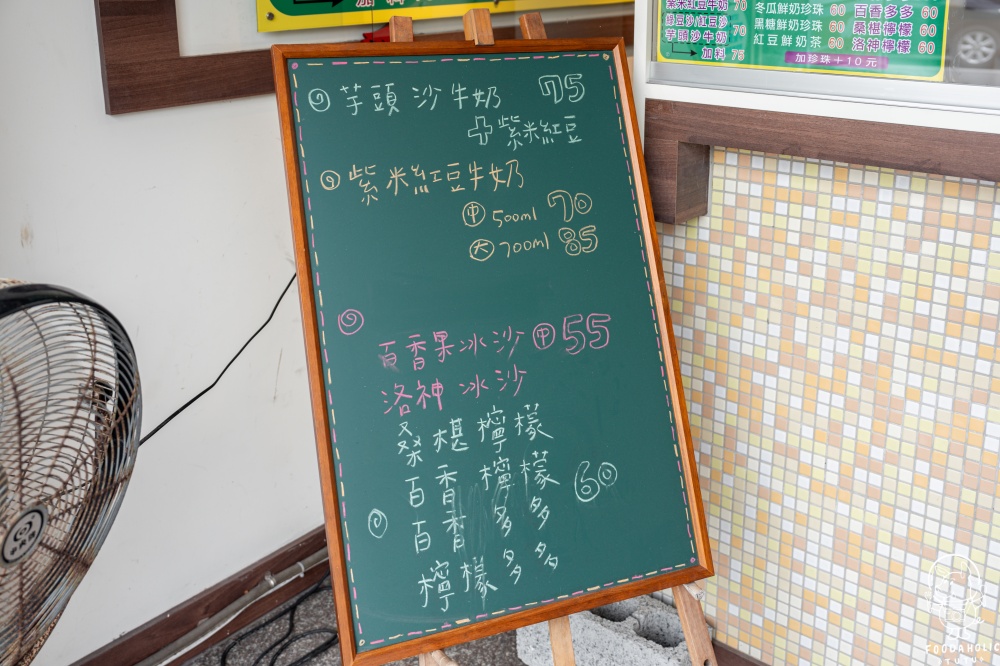 加料
紫米紅豆牛奶 70
綠豆沙/紅豆沙 70
芋頭沙牛奶
加料 75
冬瓜鮮奶珍珠 60
黑糖鮮奶珍珠 60
紅豆鮮奶茶 60
百香多多 60
桑椹檸檬 60
洛神檸檬 60
加珍珠+10元
芋頭沙牛奶 75
+紫米紅豆
紫米紅豆牛奶
中 500ml 70
大 700ml 85
百香果冰沙 中 55
洛神冰沙
桑椹檸檬
百香檸檬 60
百香多多
檸檬多多
FOODAHOLIC
TUTU